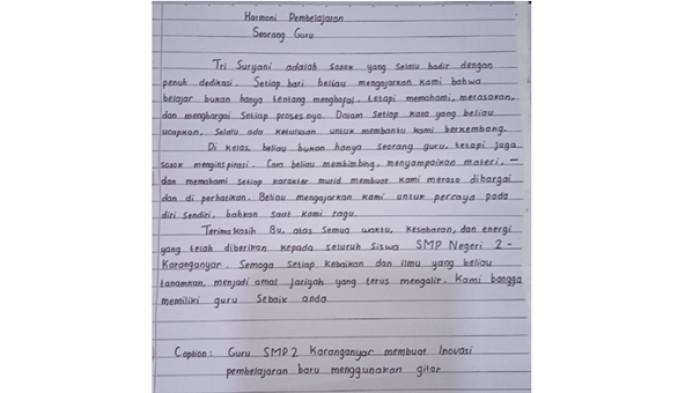 Harmoni Pembelajaran
Seorang Guru
Tri Suryani adalah sosok yang selalu hadir dengan
penuh dedikasi. Setiap hari beliau mengajarkan kami bahwa
belajar bukan hanya tentang menghafal, tetapi memahami, merasakan,
dan menghargai setiap prosesnya. Dalam setiap kata yang beliau
ucapkan, selalu ada ketulusan untuk membantu kami berkembang.
Di kelas, beliau bukan hanya seorang guru, tetapi juga
sosok menginspirasi. Cara beliau membimbing, menyampaikan materi, -
dan memahami setiap karakter murid membuat kami merasa dihargai
dan di perhatikan. Beliau mengajarkan kami untuk percaya pada
diri sendiri, bahkan saat kami ragu.
Terima kasih Bu, atas semua waktu, kesabaran, dan energi
yang telah diberikan kepada seluruh siswa SMP Negeri 2 -
Karanganyar. Semoga setiap kebaikan dan ilmu yang beliau
tanamkan, menjadi amal jariyah yang terus mengalir. Kami bangga
memiliki guru sebaik anda
Caption: Guru SMP 2 Karanganyar membuat Inovasi
pembelajaran baru menggunakan gitar